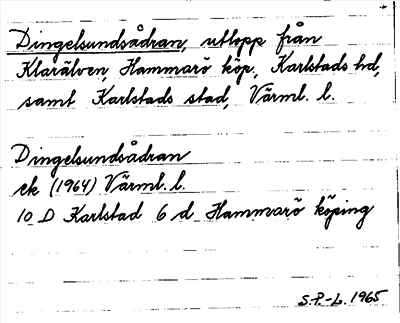 Dingelsundsådran, utlopp från
Klarälven, Hammarö köp., Karlstads hd,
samt Karlstads stad, Värml. l.
Dingelsundsådran
ek (1964) Värml. l.
10 D Karlstad 6 d Hammarö köping
S.P.-L. 1965